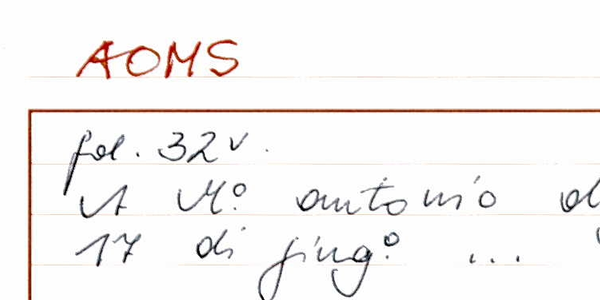 AOMS
fol. 32v.
A M.º antonio
17 di giug.º ...